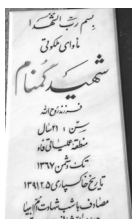 بسم رب الشهدا
مأوای ملکوتی
شهید گمنام
فرزند روح الله
سن : ۲۱ سال
منطقه عملیاتی فاو
تک دشمن ۱۳۶۷
تاریخ خاکسپاری ۱۳۹۱/۲/۵
مصادف با شب شهادت